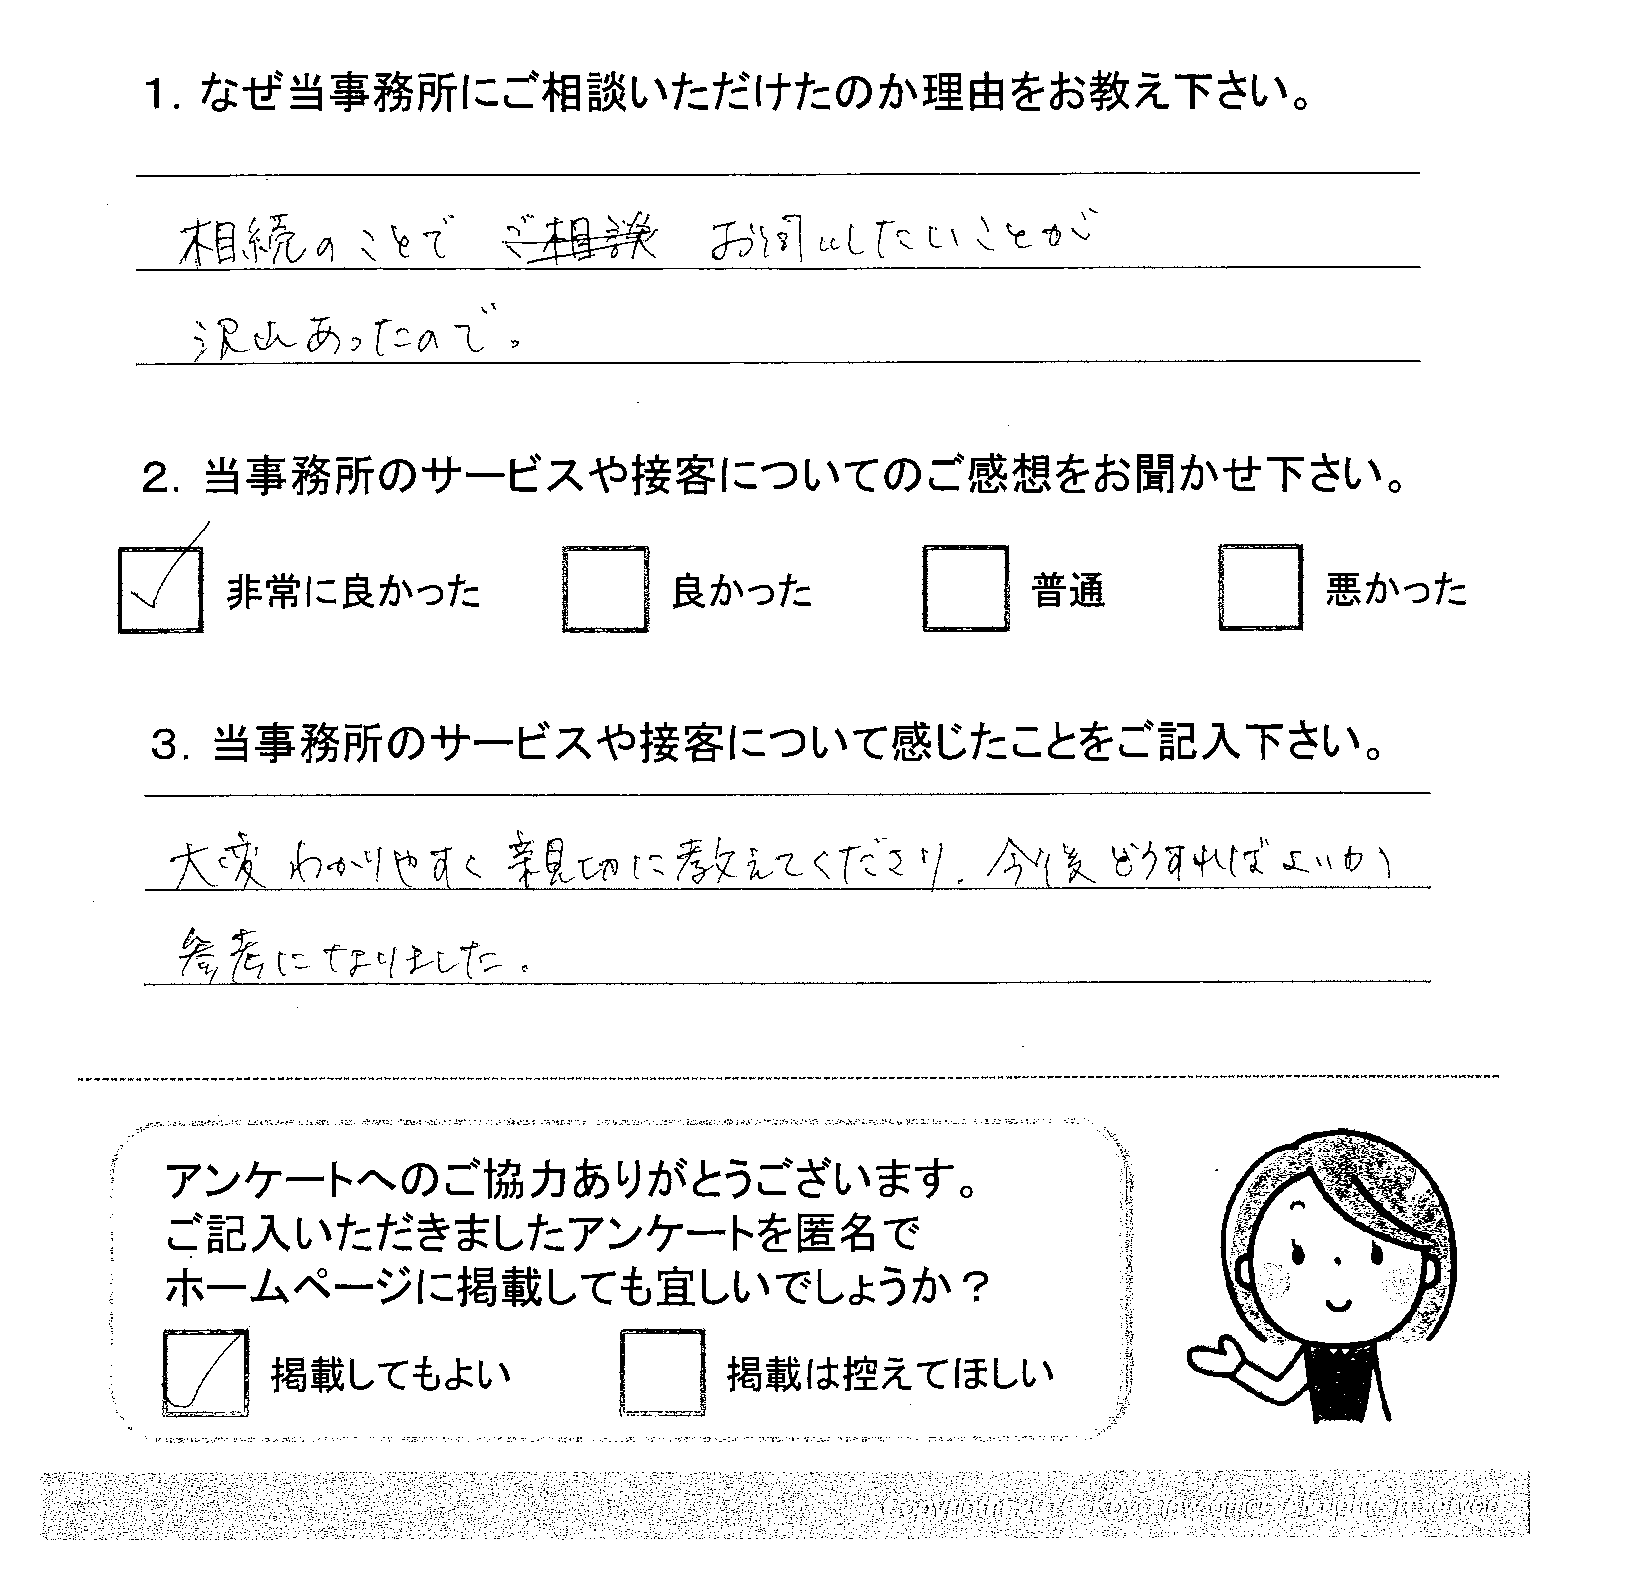 1. なぜ当事務所にご相談いただけたのか理由をお教え下さい。
相続のことで ご相談 お伺いしたいことが
沢山あったので。
2. 当事務所のサービスや接客についてのご感想をお聞かせ下さい。
非常に良かった 良かった 普通 悪かった
3. 当事務所のサービスや接客について感じたことをご記入下さい。
大変わかりやすく親切に教えてくださり、今後どうすればよいか
参考になりました。
アンケートへのご協力ありがとうございます。
ご記入いただきましたアンケートを匿名で
ホームページに掲載しても宜しいでしょうか？
掲載してもよい 掲載は控えてほしい